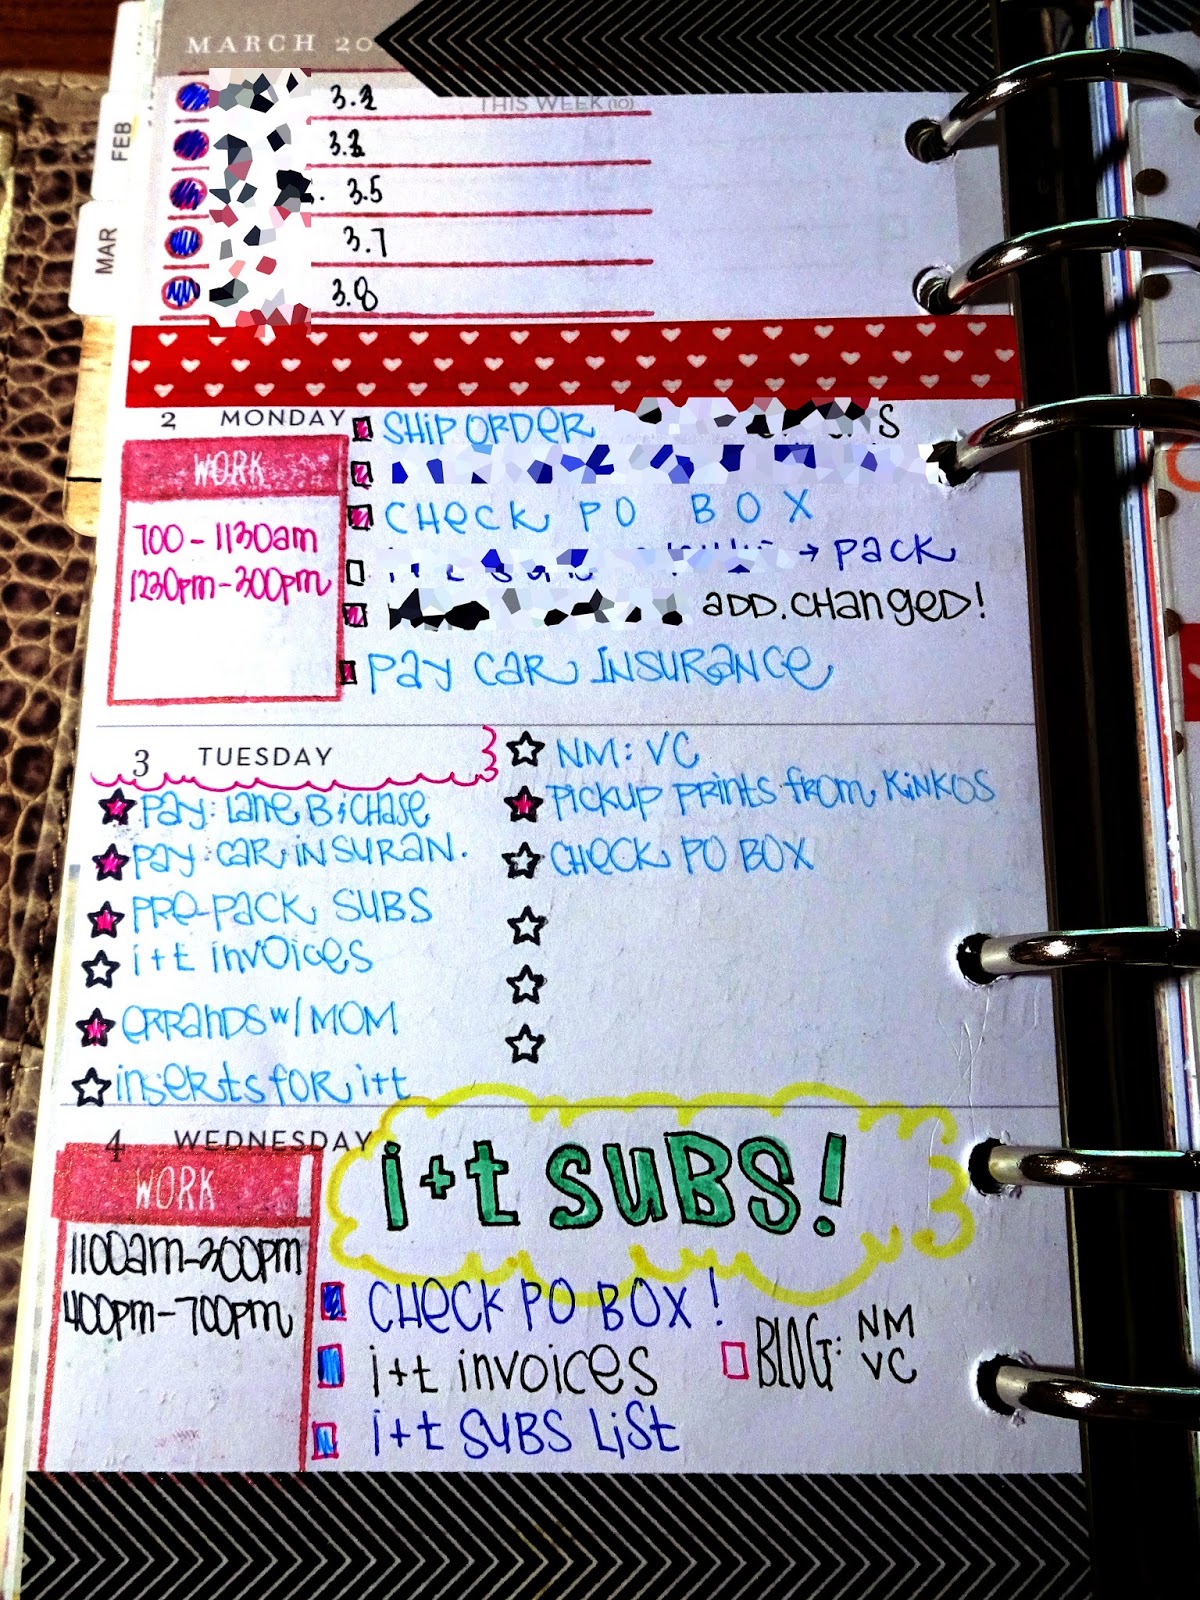 MARCH 20
THIS WEEK (10)
3.2
3.3
3.5
3.7
3.8
FEB
MAR
2 MONDAY
WORK
700 - 1130am
1230pm - 300pm
SHIP ORDER
S
CHECK PO BOX
→ PACK
ADD. CHANGED!
PAY CAR INSURANCE
3 TUESDAY
PAY: LANE B & CHASE
PAY CAR INSURAN.
PRE-PACK SUBS
i+t invoices
ERRANDS w/ MOM
inserts for i+t
NM: VC
PICKUP PRINTS from KINKOS
CHECK PO BOX
4 WEDNESDAY
WORK
1100am - 300pm
400pm - 700pm
i+t SUBS!
CHECK PO BOX!
i+t invoices
i+t SUBS LIST
BLOG: NM
VC